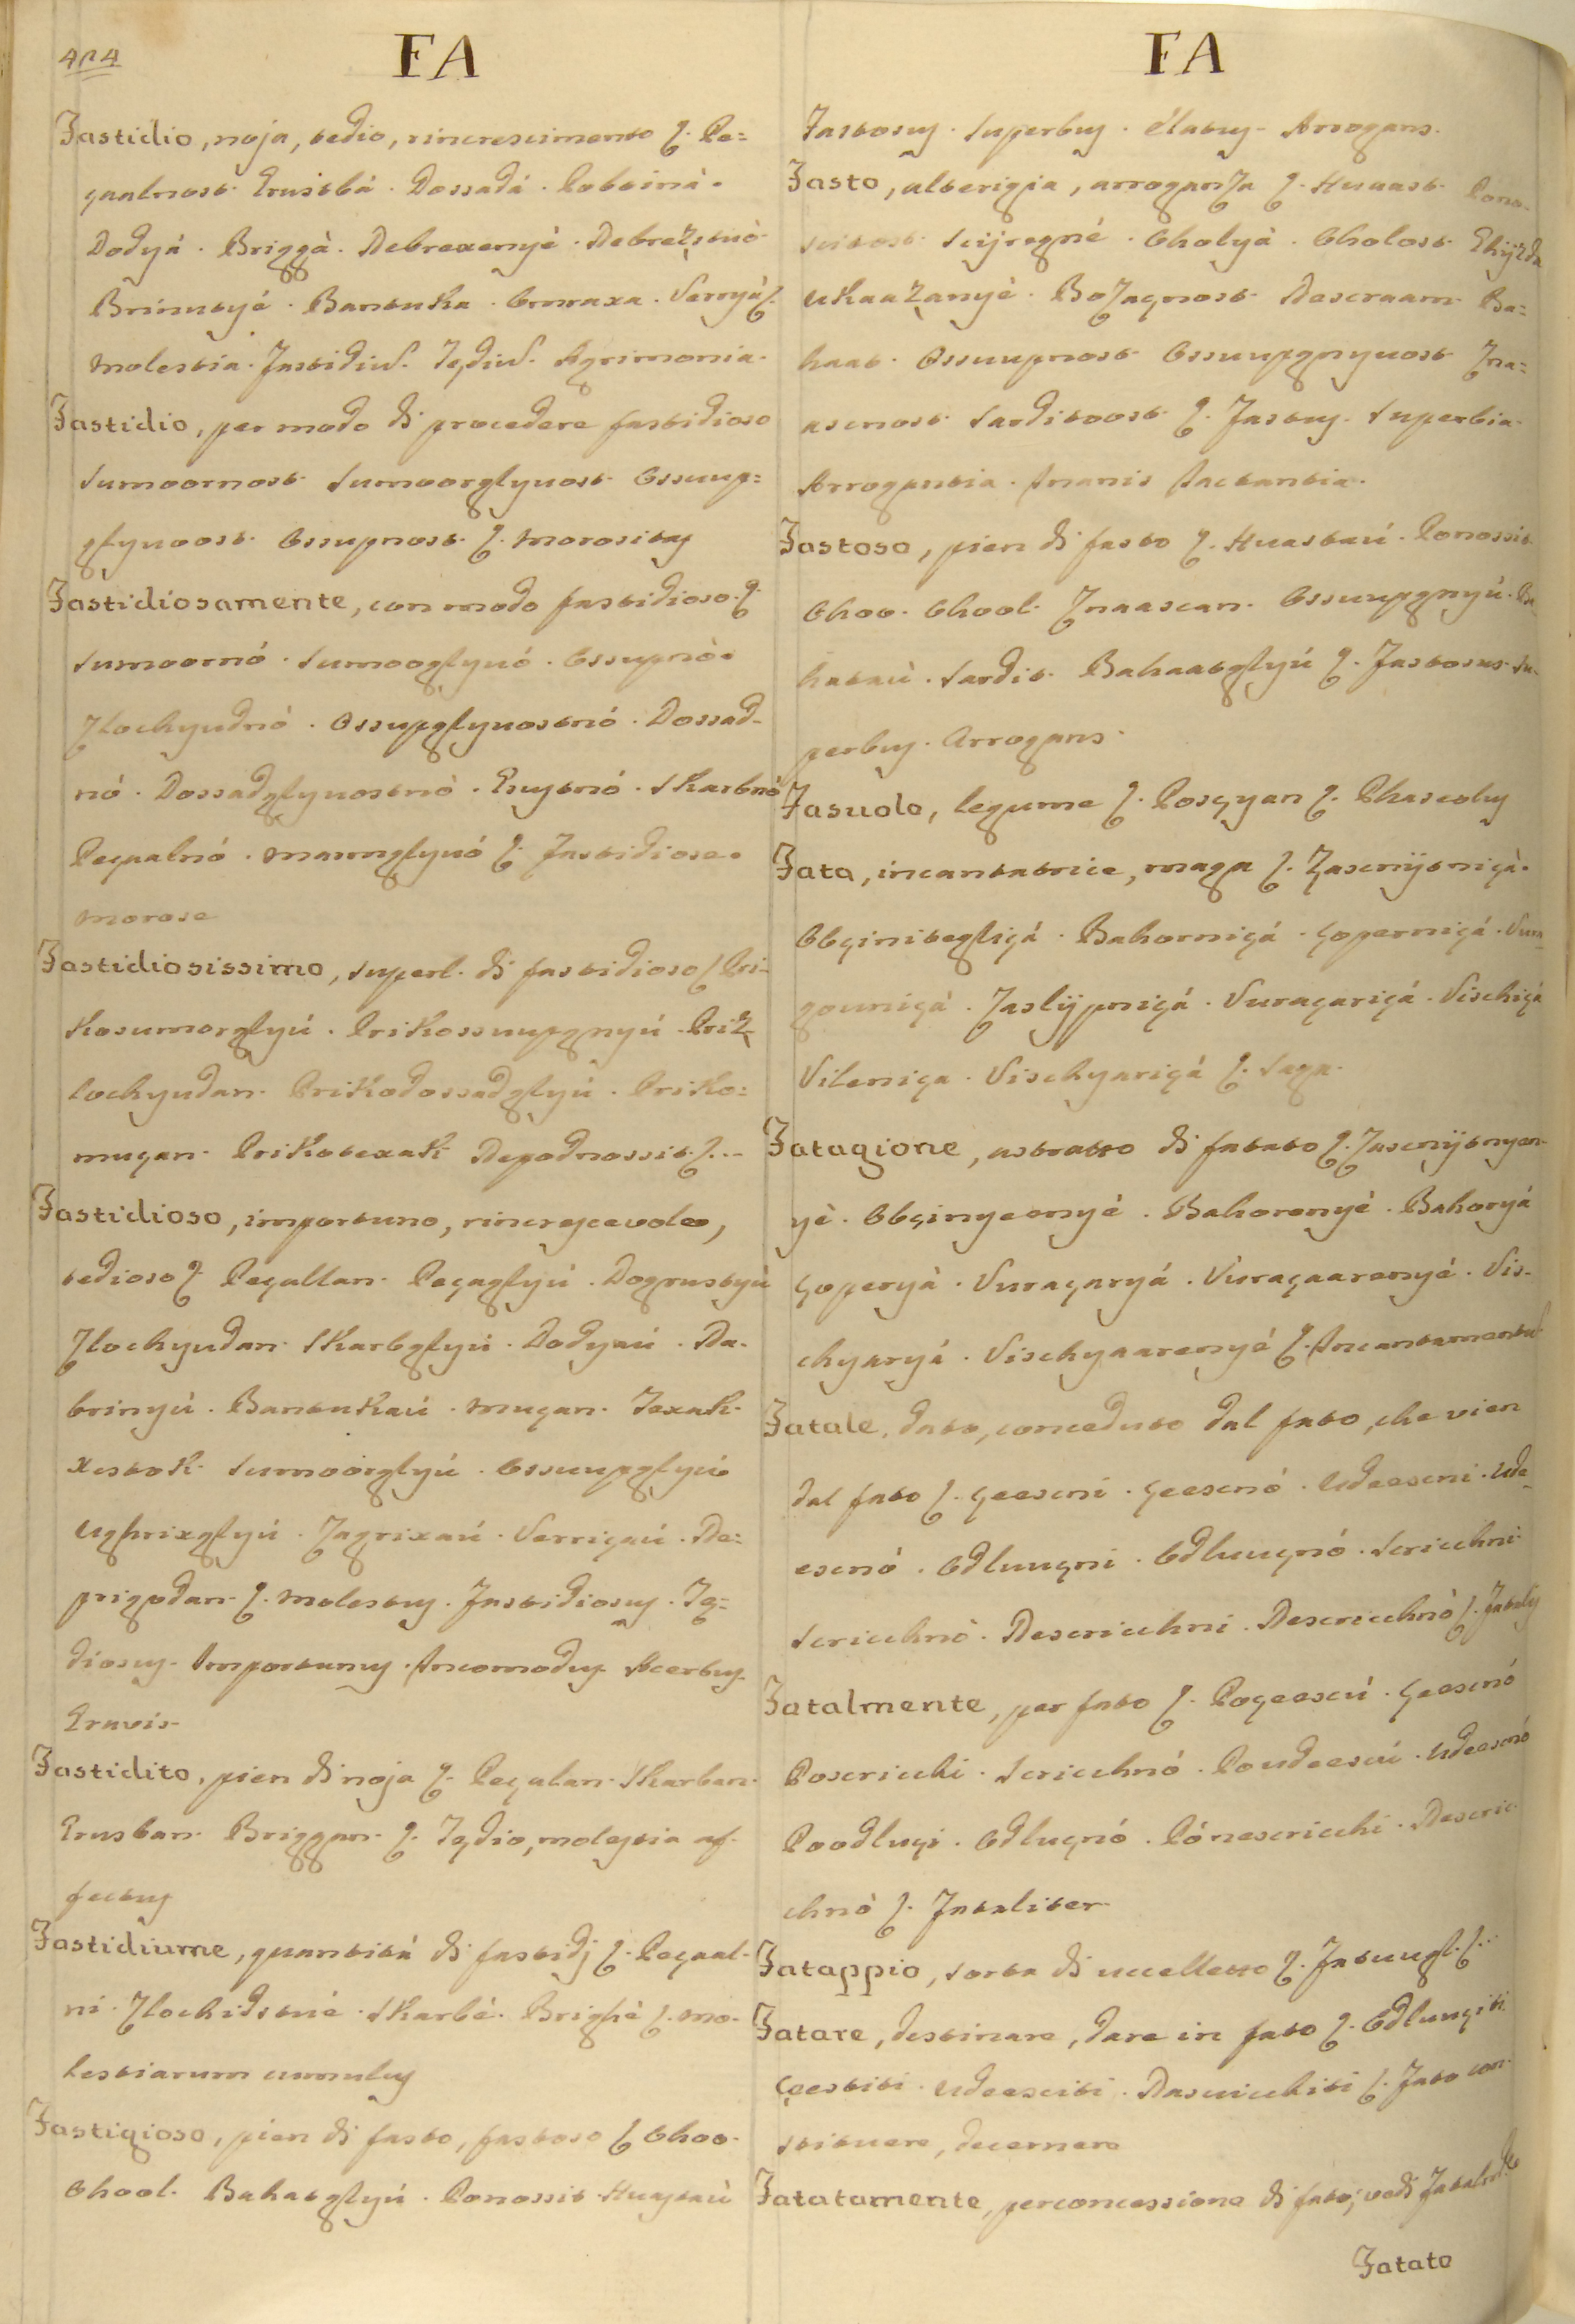 474
FA
Fastidio, noja, tedio, rincrescimento ſ. Pe=
çaalnost. Grustbá. Dossadá. Pottiná.
Dodyá. Briggà. Debrexenyè. Debreʒstuò.
Brinutyé. Bantuka. Omraxa. Serryá ſ.
Molestia. Fastidiũ. Tędiũ. Ægrimonia.
Fastidio, per modo di procedere fastidioso
Sumoornost. Sumoorglyuost. Ossuup=
glyuoost. Ossupnost. ſ. Morositas
Fastidiosamente, con modo fastidioso. ſ.
Sumoornó. Sumooglyuó. Ossupnò.
Zlochyudnò. Ossupglyuostnó. Dossad-
nó. Dossadglyuostnò. Grustnó. Skarbnò
Peçaalnó. Marnglyuó ſ. Fastidiose.
Morose
Fastidiosissimo, Superl. di fastidioso ſ. Pri-
kosumorglyú. Prikossuupgnyú. Priz-
lochyudan. Prikodossadglyú. Priko=
muçan. Prikotexak Depodnossit. ſ. --
Fastidioso, importuno, rincrescevole,
tedioso ſ. Peçallan. Peçaglyú. Dogrustyú
Zlochyudan. Skarbglyú. Dodyaú. Da.
brinyú. Bantukaú. Muçan. Texak.
Xestok. Sumoorglyú. Ossuupglyú.
Ughrixglyú. Zagrixaú. Serriçaú. De=
prigodan. ſ. Molestus. Fastidiosus. Tę=
diosus. Importunus. Incomodus. Acerbus.
Gravis.
Fastidito, pien di noja ſ. Peçalan. Skarban.
Grustan. Briggan. ſ. Tędio, molestia af-
fectus
Fastidiume, quantità di fastidj ſ. Peçaal-
ni. Zlochidstué. Skarbé. Brighè ſ. Mo-
lestiarum cumulus
Fastigioso, pien di fasto, fastoso ſ. Ohoo.
Ohool. Bahatglyú. Ponossit. Huastaù
FA
Fastosus. Superbus. Elatus. Arrogans.
Fasto, alterigia, arroganza ſ. Huaast. Pono-
sitost. Scijregné. Oholyà. Oholost. Ghijzda
Ukaaʒanyè. Bozaçnost. Descraam. Ba=
haat. Ossuupnost. Ossuupgnyuost. Zna=
ascnost. Sarditoost. ſ. Fastus. Superbia.
Arrogantia. Inanis Jactantia.
Fastoso, pien di fasto ſ. Huastaú. Ponossit.
Ohoo. Ohool. Znaascan. Ossuupgnyú. Ba-
hataù. Sardit. Bahaatglyú ſ. Fastosus. Su-
perbus. Arrogans.
Fasuolo, legume ſ. Posçyan ſ. Phaseolus
Fata, incantatrice, maga ſ. Zascnijtniçà.
Obçinitegliçá. Bahorniçá. Çoperniçá. Vura-
gouniçà. Zaslijpniçá. Vuraçariçá. Vischiçá
Vileniça. Vischyariçá ſ. Saga.
Fatagione, astratto di fatato ſ. Zascnijtnyen-
yè. Obçinyeenyé. Bahorenyé. Bahoryá
Çoperyà. Vuraçaryá. Vuraçaarenyé. Vis-
chyaryá. Vischyaarenyé ſ. Incantamentũ
Fatale, dato, conceduto dal fato, che vien
dal fato ſ. Çeescni. Çeescnó. Udeescni. Ude-
escnó. Odluuçni. Odluuçnó. Scricchni.
Scricchnò. Descricchni. Descricchnò ſ. Fatalis
Fatalmente, per fato ſ. Poçeescú. Çeescnó
Poscricchi. Scricchnó. Poudeescú. Udeescnó
Poodluçi. Odluçnó. Pónescricchi. Descric-
chnò ſ. Fataliter
Fatappio, sorta di uccelletto ſ. Fatuugl. ſ...
Fatare, destinare, dare in fato ſ. Odluuçiti
Çestiti. Udeesciti. Dascricchiti ſ. Fato con-
stituere, decernere
Fatatamente, per concessione di fato; vedi Fatalmte
Fatato